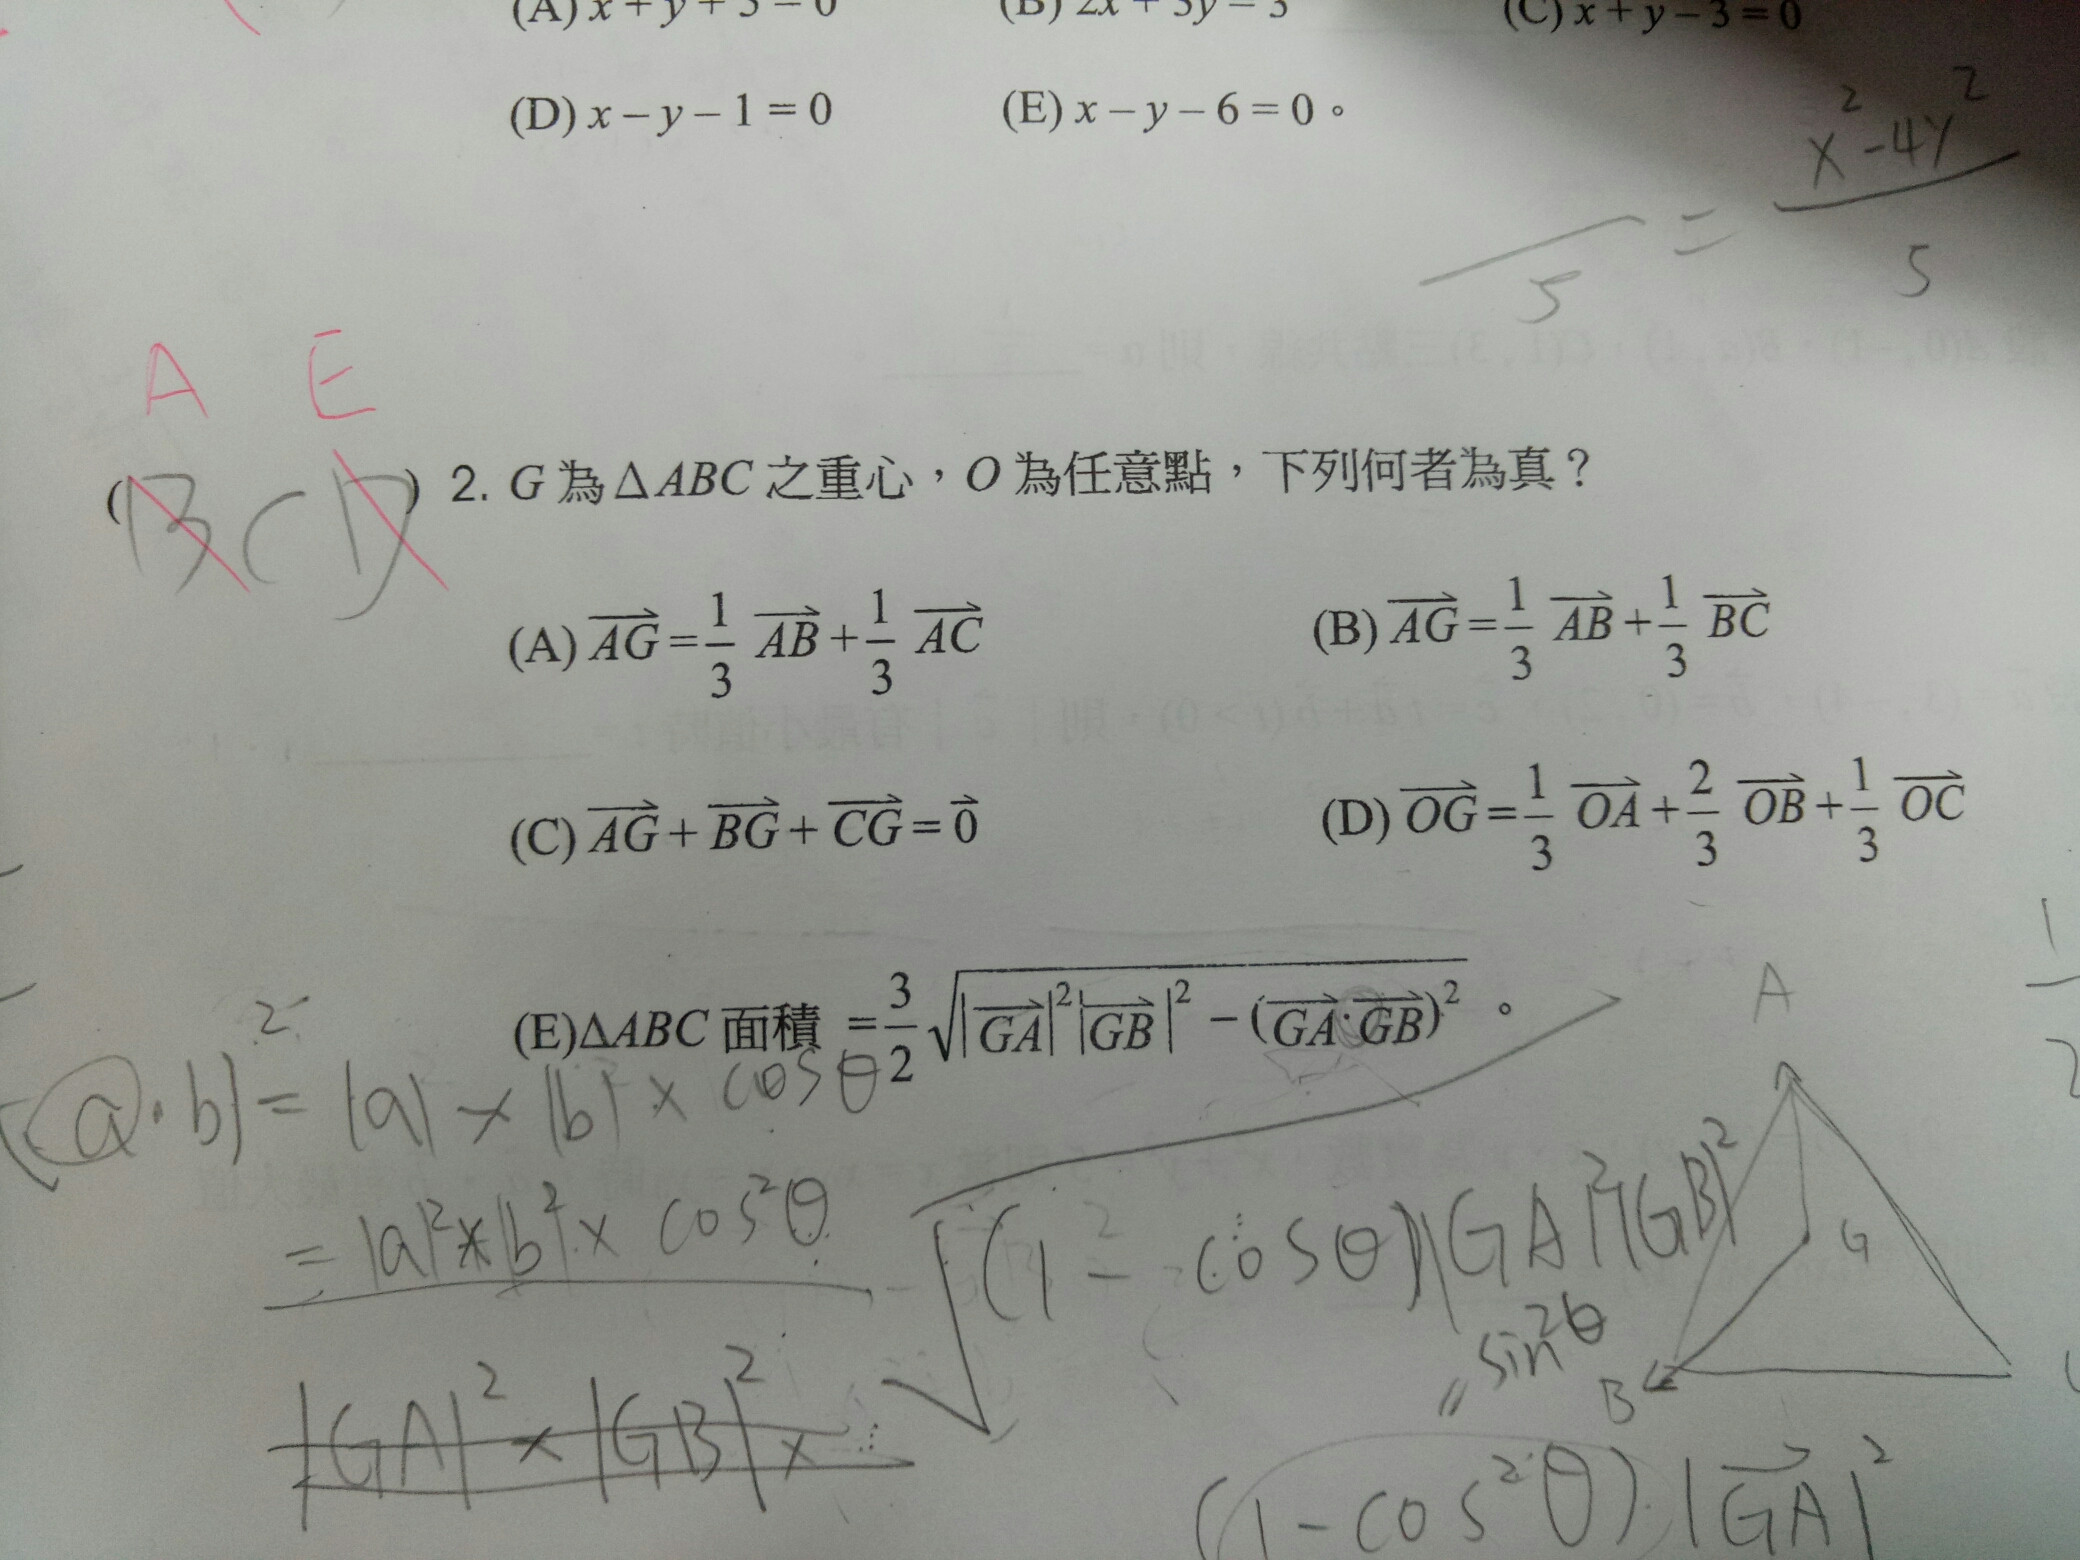 (A) x + y + 3 = 0 (B) 2x + 3y = 3 (C) x + y − 3 = 0
(D) x − y − 1 = 0 (E) x − y − 6 = 0。
5 = x² − 4y² / 5
A E
( B C D ) 2. G 為 △ABC 之重心，O 為任意點，下列何者為真？
(A) AG⃗ = 1/3 AB⃗ + 1/3 AC⃗ (B) AG⃗ = 1/3 AB⃗ + 1/3 BC⃗
(C) AG⃗ + BG⃗ + CG⃗ = 0⃗ (D) OG⃗ = 1/3 OA⃗ + 2/3 OB⃗ + 1/3 OC⃗
(E) △ABC 面積 = 3/2 √(|GA⃗|²|GB⃗|² − (GA⃗·GB⃗)²)。
(a·b)² = |a| × |b| × cosθ
= |a|² × |b|² × cos²θ
√(1 − cos²θ)|GA|²|GB|²
sin²θ
|GA|² × |GB|² ×
(1 − cos²θ)·|GA⃗|²
A
G
B
1/2